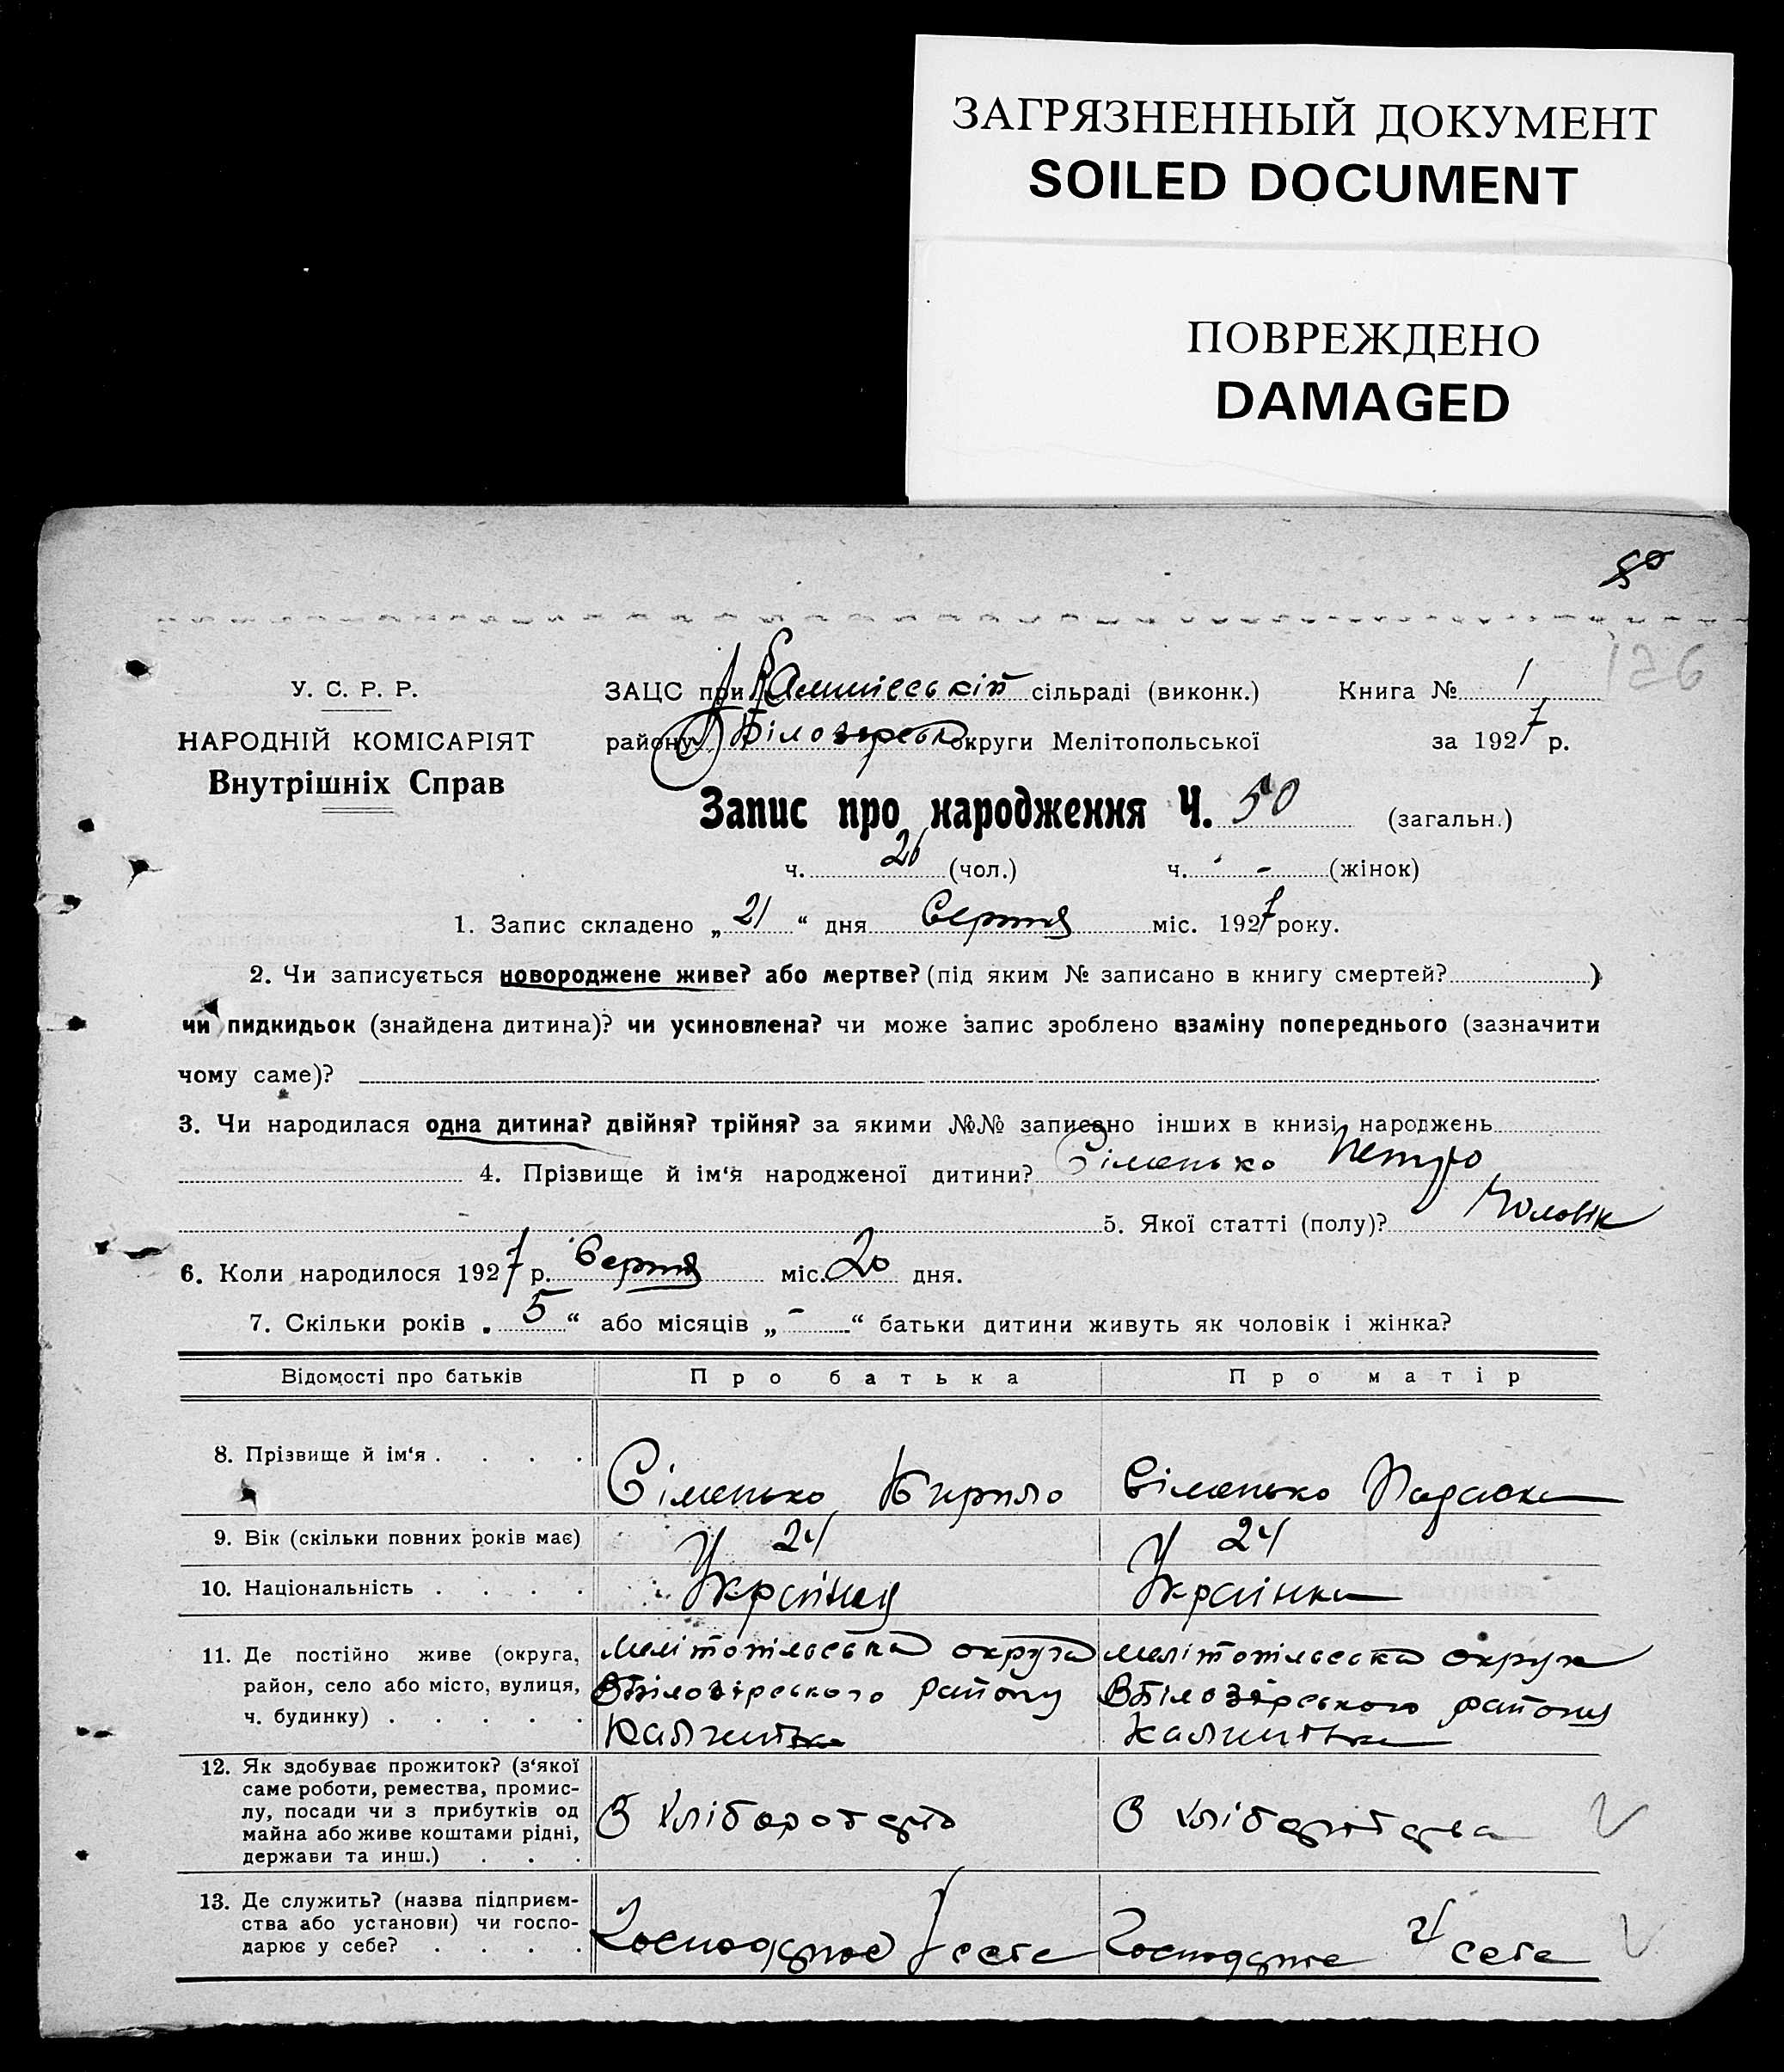 ЗАГРЯЗНЕННЫЙ ДОКУМЕНТ
SOILED DOCUMENT
ПОВРЕЖДЕНО
DAMAGED
50
126
У. С. Р. Р.
НАРОДНІЙ КОМІСАРІЯТ
Внутрішніх Справ
ЗАЦС при сільраді (виконк.) Книга № 1
району округи Мелітопольської за 1927 р.
Запис про народження Ч. 50 (загальн.)
ч. 26 (чол.) ч. - (жінок)
1. Запис складено „ 21 “ дня Серпня міс. 1927 року.
2. Чи записується новороджене живе? або мертве? (під яким № записано в книгу смертей? )
чи пидкидьок (знайдена дитина)? чи усиновлена? чи може запис зроблено взаміну попереднього (зазначити
чому саме)?
3. Чи народилася одна дитина? двійня? трійня? за якими №№ записано інших в книзі народжень
4. Прізвище й ім‘я народженої дитини? Сіманько Петро
5. Якої статті (полу)? Чоловік
6. Коли народилося 1927 р. Серпня міс. 20 дня.
7. Скільки років „ 5 “ або місяців „ - “ батьки дитини живуть як чоловік і жінка?
Відомості про батьків Про батька Про матір
8. Прізвище й ім‘я . . . . Сіманько Кирило Сіманько
9. Вік (скільки повних років має) 24 24
10. Національність . . . . Українка
11. Де постійно живе (округа,
район, село або місто, вулиця,
ч. будинку) . . . . .
Мелітопільська округа
Білозірського району
Мелітопільська округа
Білозірського району
12. Як здобуває прожиток? (з‘якої
саме роботи, ремества, промис-
лу, посади чи з прибутків од
майна або живе коштами рідні,
держави та инш.) . . .
З З
13. Де служить? (назва підприєм-
ства або установи) чи госпо-
дарює у себе? . . . .
Господарює У себе Господарює У себе